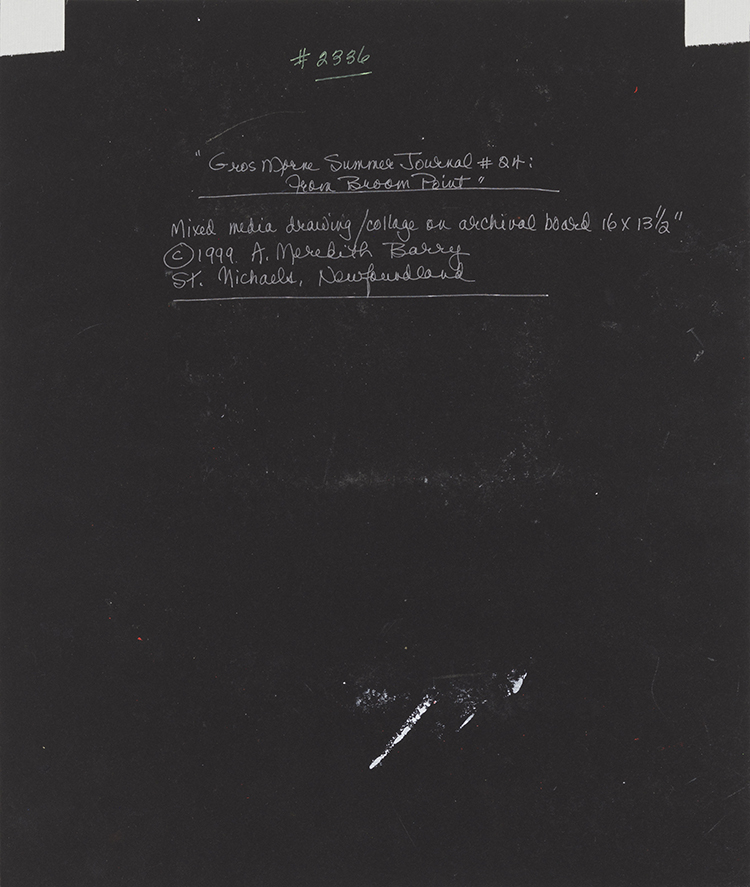 # 2336
"Gros Morne Summer Journal # 24:
From Broom Point"
Mixed media drawing/collage on archival board 16 x 13½"
© 1999 A. Meredith Barry
St. Michaels, Newfoundland